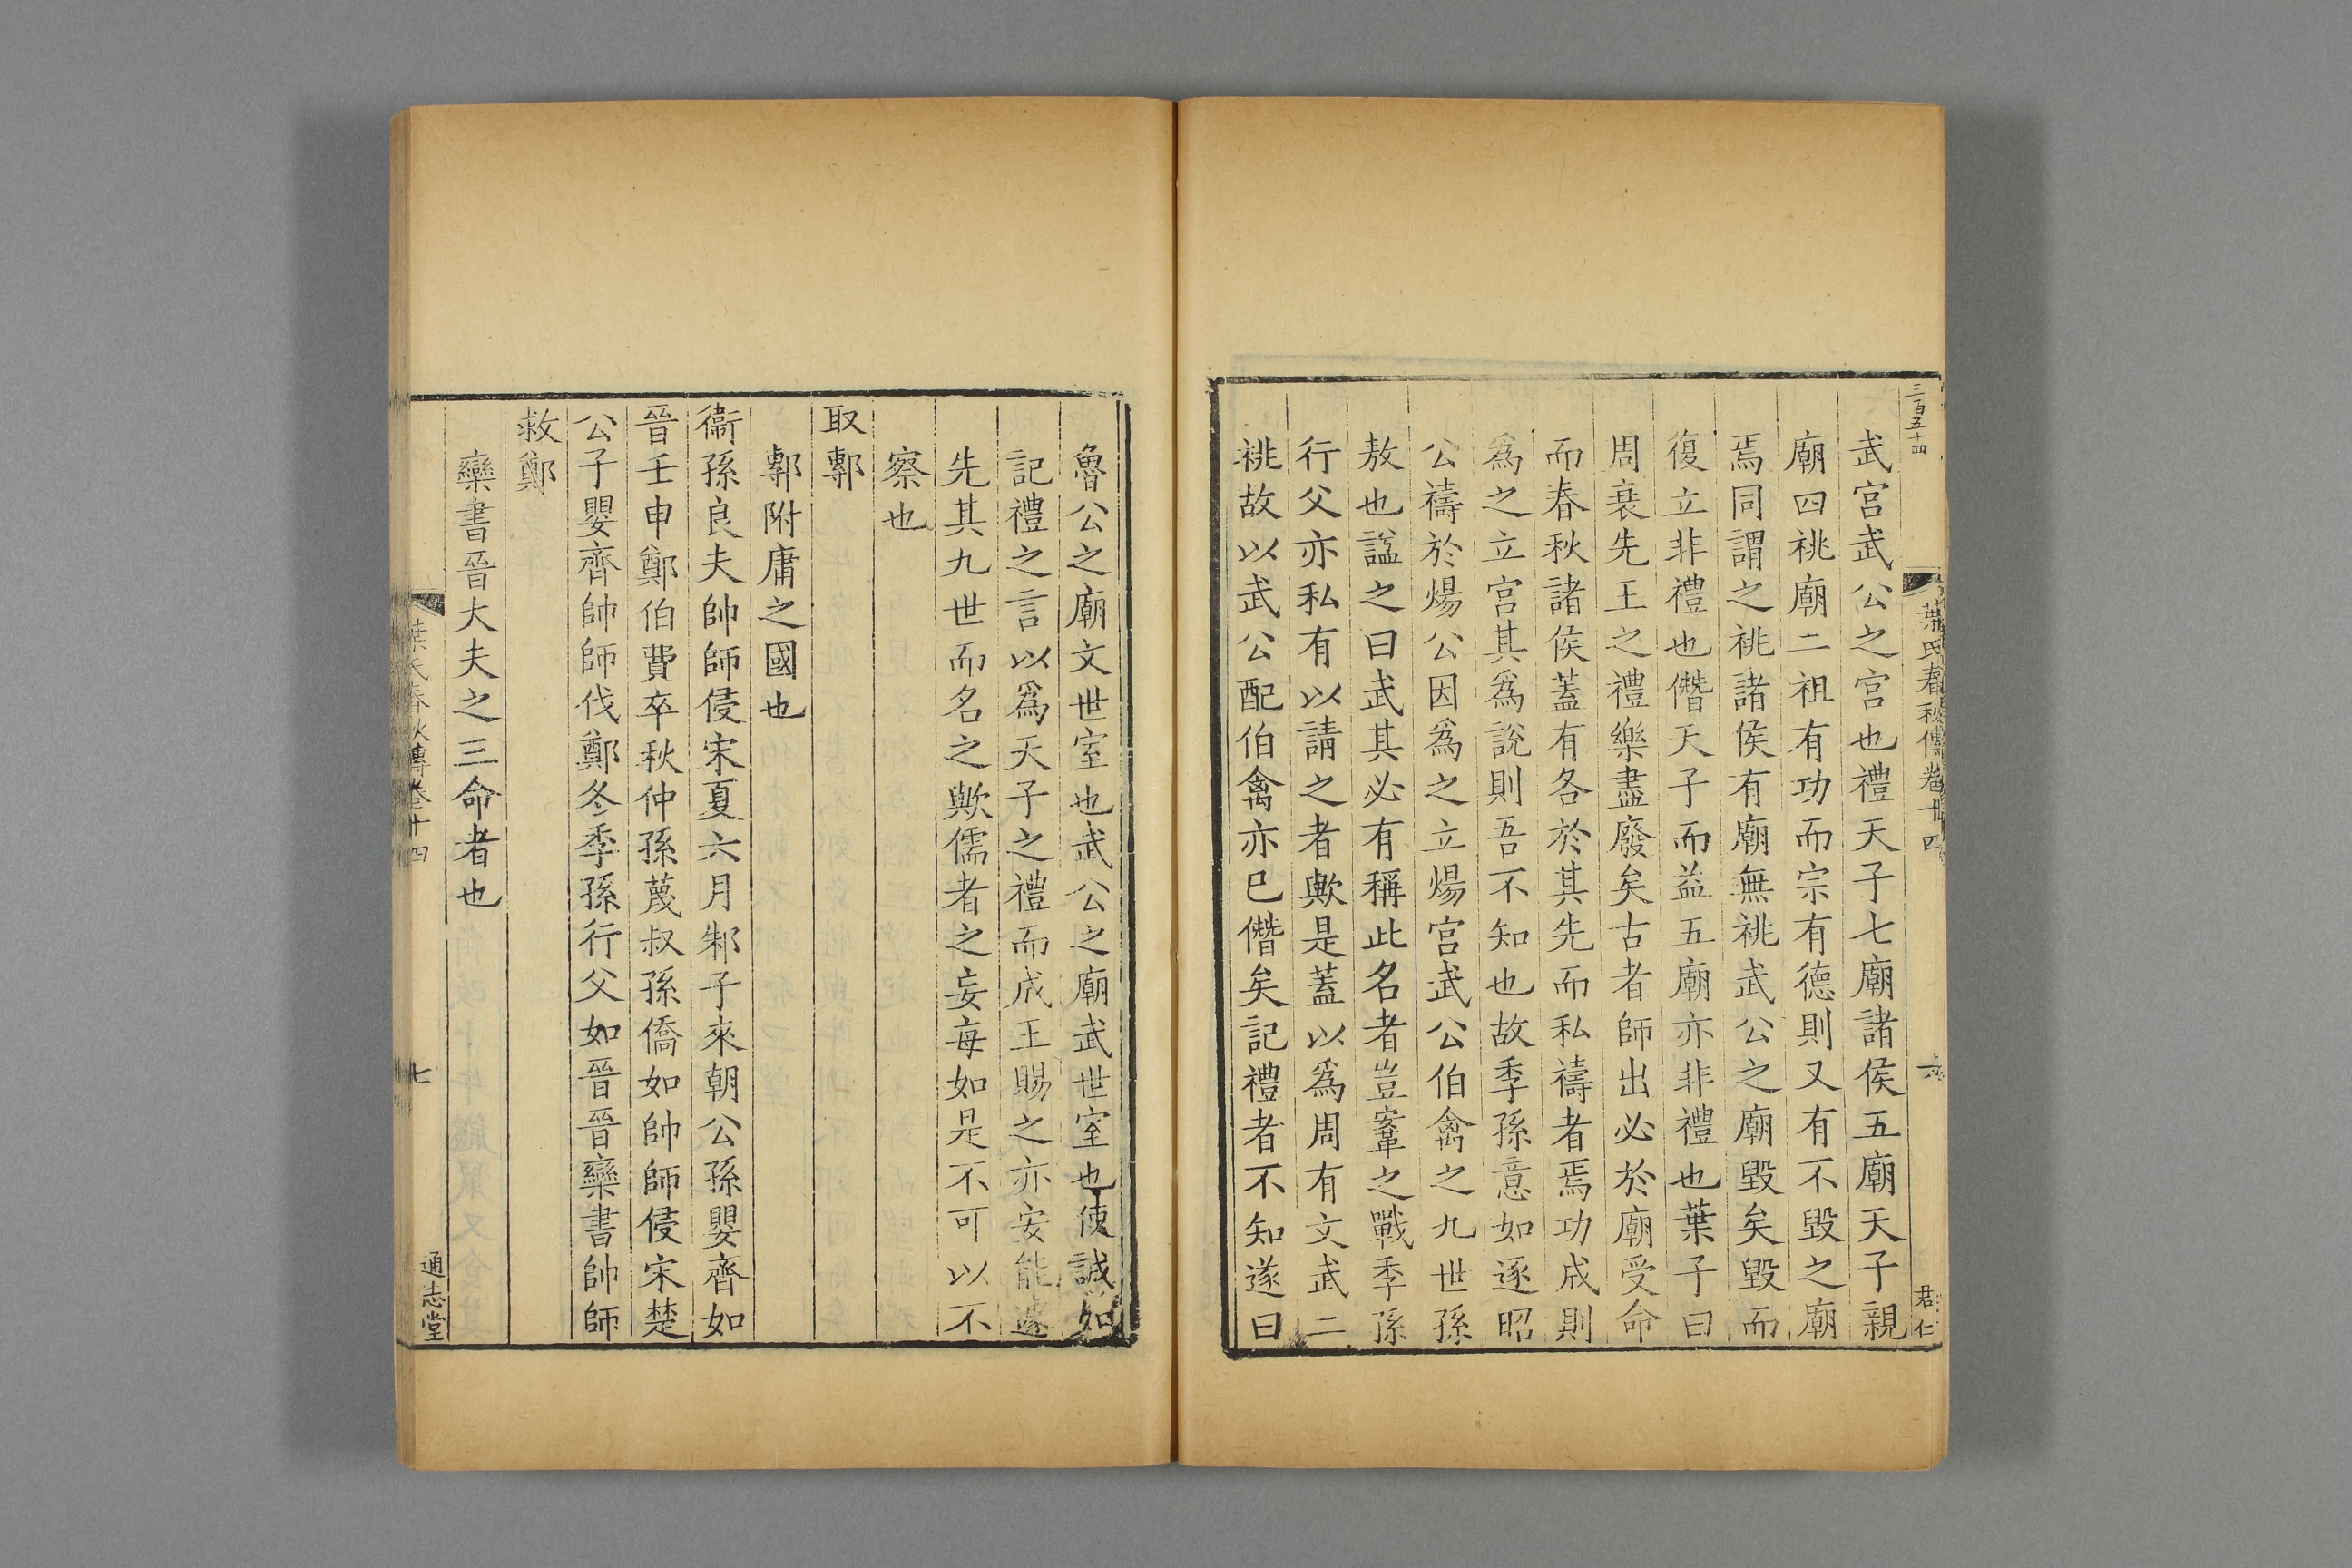 三百五十四
葉氏春秋傳卷十四
六
君仁
武宮武公之宮也禮天子七廟諸侯五廟天子親
廟四祧廟二祖有功而宗有德則又有不毀之廟
焉同謂之祧諸侯有廟無祧武公之廟毀矣毀而
復立非禮也僭天子而益五廟亦非禮也葉子曰
周衰先王之禮樂盡廢矣古者師出必於廟受命
而春秋諸侯蓋有各於其先而私禱者焉功成則
爲之立宮其爲說則吾不知也故季孫意如逐昭
公禱於煬公因爲之立煬宮武公伯禽之九世孫
敖也諡之曰武其必有稱此名者豈鞌之戰季孫
行父亦私有以請之者歟是蓋以爲周有文武二
祧故以武公配伯禽亦已僭矣記禮者不知遂曰
魯公之廟文世室也武公之廟武世室也使誠如
記禮之言以爲天子之禮而成王賜之亦安能遂
先其九世而名之歟儒者之妄每如是不可以不
察也
取鄟
鄟附庸之國也
衞孫良夫帥師侵宋夏六月邾子來朝公孫嬰齊如
晉壬申鄭伯費卒秋仲孫蔑叔孫僑如帥師侵宋楚
公子嬰齊帥師伐鄭冬季孫行父如晉晉欒書帥師
救鄭
欒書晉大夫之三命者也
葉氏春秋傳卷十四
七
通志堂